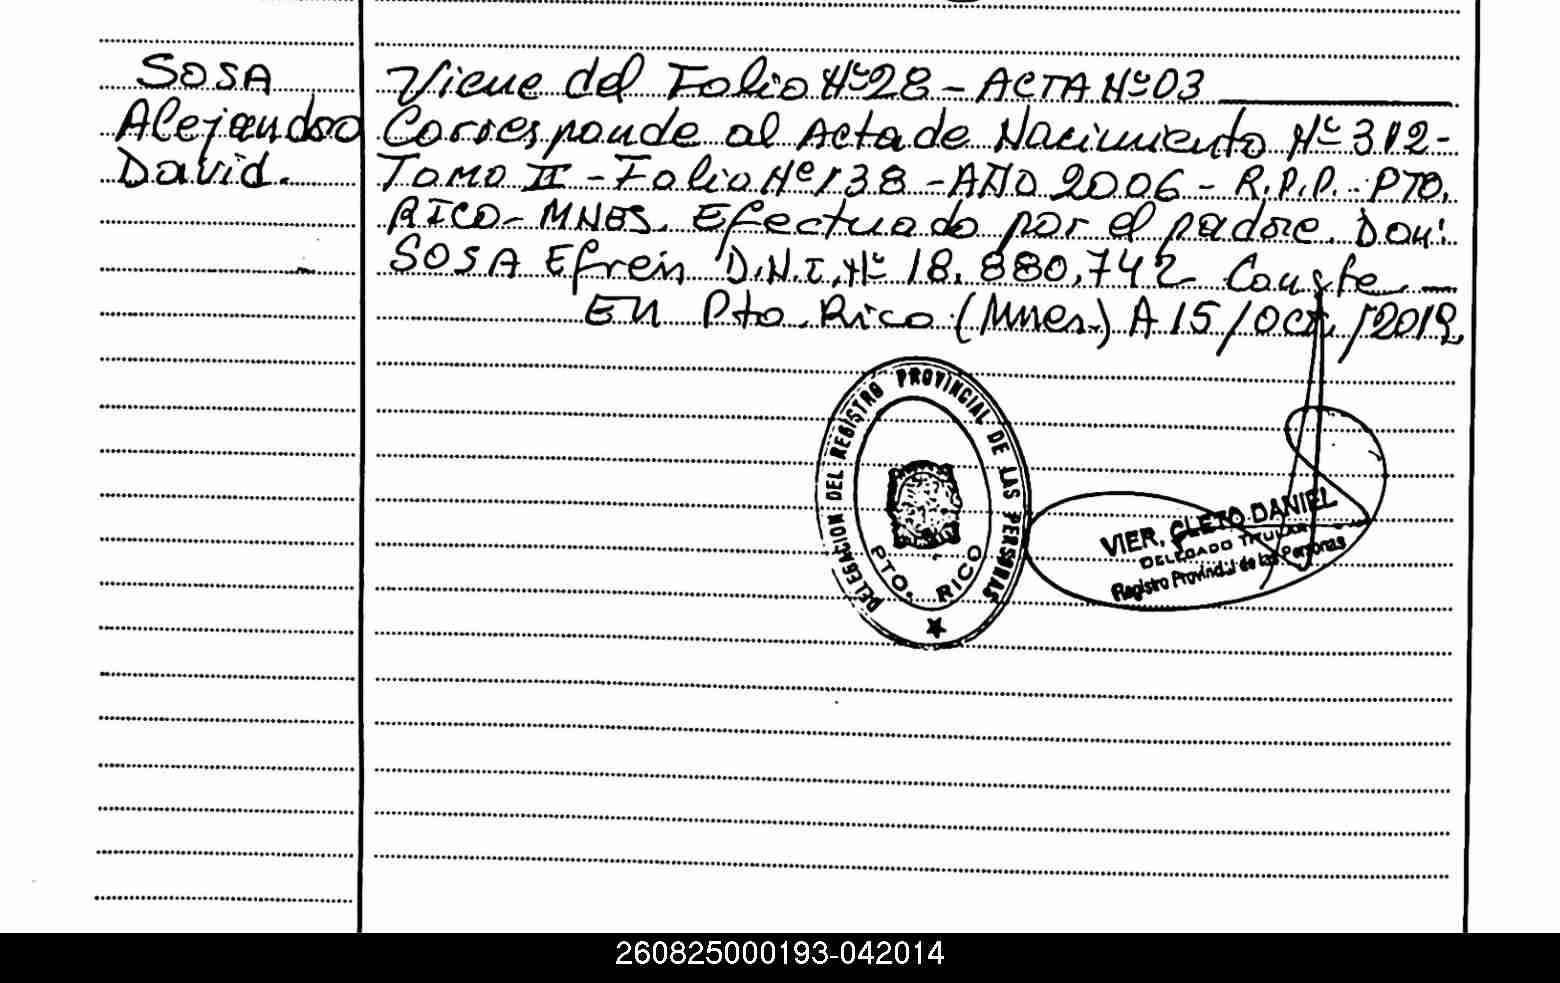 SOSA
Alejandro
David.
Viene del Folio Nº 28 - ACTA Nº 03
Corresponde al Acta de Nacimiento Nº 312 -
TOMO II - Folio Nº 138 - AÑO 2006 - R.P.P. PTO.
RICO - MNES. Efectuado por el padre. Don:
SOSA Efrein D.N.I. Nº 18.880,742 Conste
EN Pto. Rico (Mnes.) A 15/Oct./2012
DELEGACION DEL REGISTRO PROVINCIAL DE LAS PERSONAS
PTO. RICO
VIER, CLETO DANIEL
DELEGADO TITULAR
Registro Provincial de las Personas
260825000193-042014